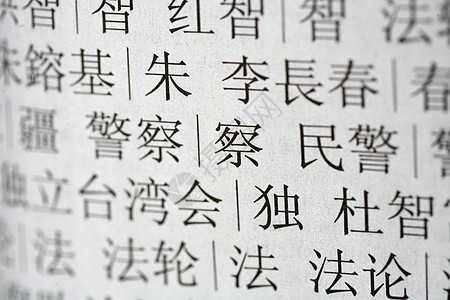 智 智 红智 智 法
朱鎔基 朱 李長春 春
疆 警察 察 民警 警
独立台湾会 独 杜智
法 法轮 法 法论